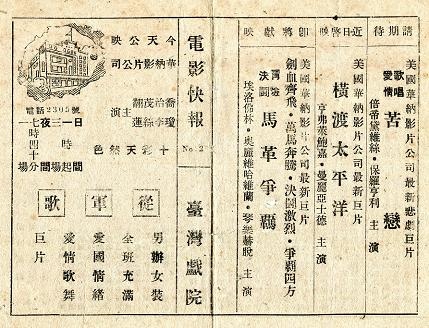 請期待
美國華納影片公司最新悲劇巨片
歌唱愛情 苦戀
倍帝黛維絲・保羅亨利 主演
近日啓映
美國華納影片公司最新巨片
橫渡太平洋
亨弗萊鮑嘉・曼麗亞士德 主演
卽將獻映
美國華納影片公司最新巨片
劍血齊飛・萬馬奔騰・決鬪激烈・爭霸四方
冒險決鬪 馬革爭霸
埃洛弗林・奧麗維哈維蘭・琴樂赫脫 主演
電影快報
No.2
臺灣戲院
今天公映
華納影片公司
喬治茂翻
李瓊絲蓮
主演
十彩天然色
電話2305號
日一三夜一七
時
時四十
起間場間分場
從軍歌
男辦女裝
全班充滿
愛國情緒
愛情歌舞
巨片